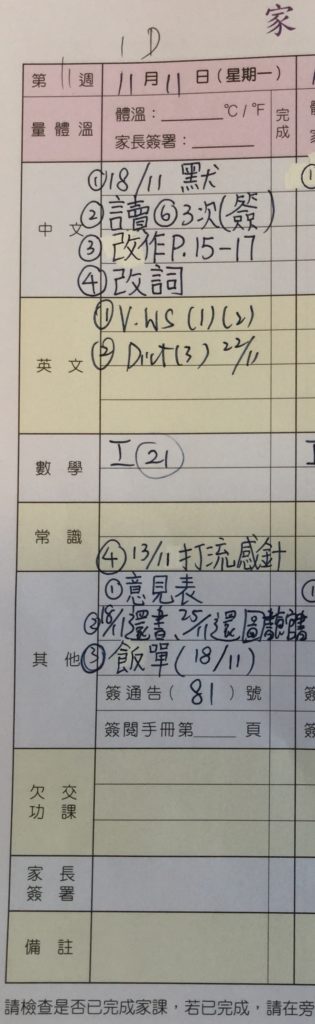 家
1D
第 11 週 11 月 11 日 (星期一)
量體溫 體溫：______℃/℉ 完成
家長簽署：______
中文 ①18/11 默
②讀⑥3次(簽)
③改作P.15-17
④改詞
英文 ①V.WS (1)(2)
②Dict(3) 22/11
數學 I (21)
常識
④13/11 打流感針
其他 ①意見表
②18/11還書、25/11還圖書
③飯單(18/11)
簽通告( 81 )號
簽閱手冊第____頁
欠交功課
家長簽署
備註
請檢查是否已完成家課，若已完成，請在旁